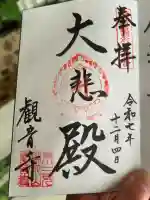 奉拝
令和七年
十二月四日
大悲殿
觀音寺